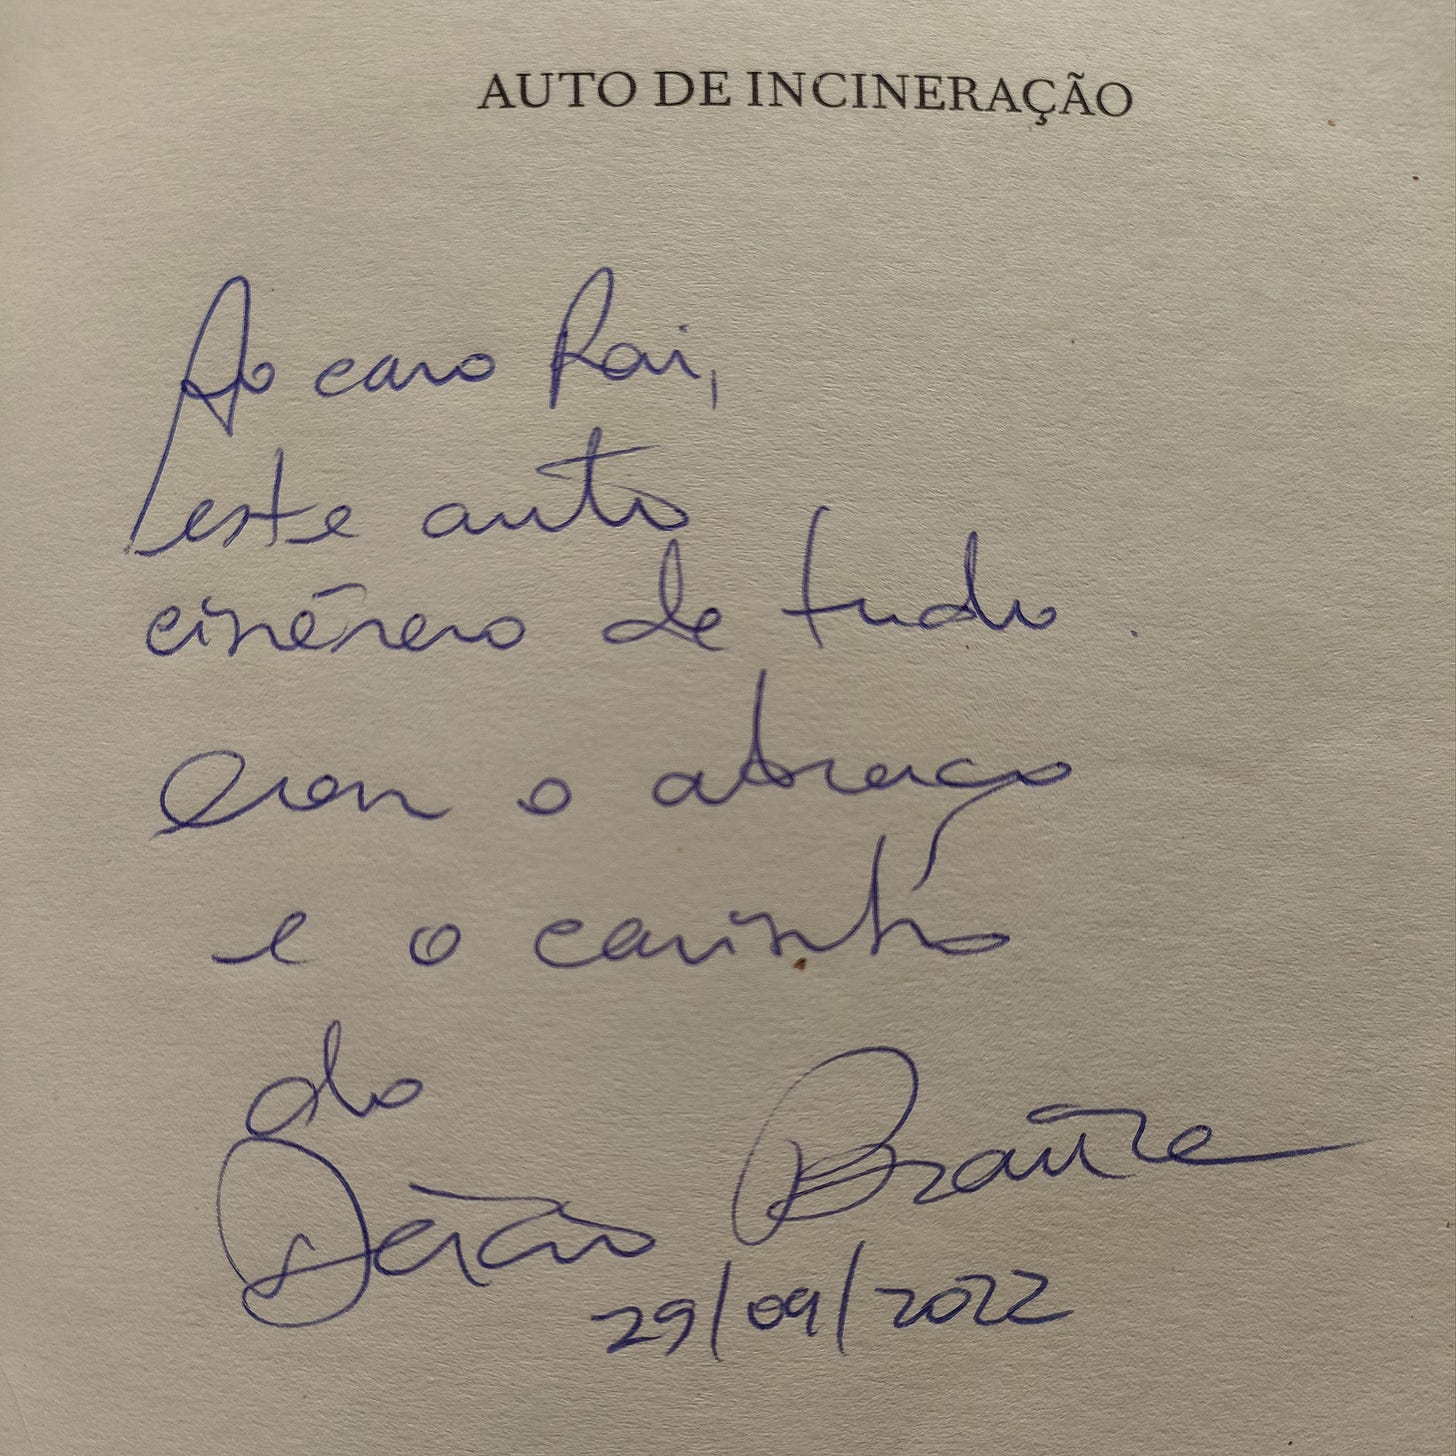 AUTO DE INCINERAÇÃO
Ao caro Rai,
este auto
cinéreo de tudo.
Com o abraço
e o carinho
do
Decio
29/09/2022